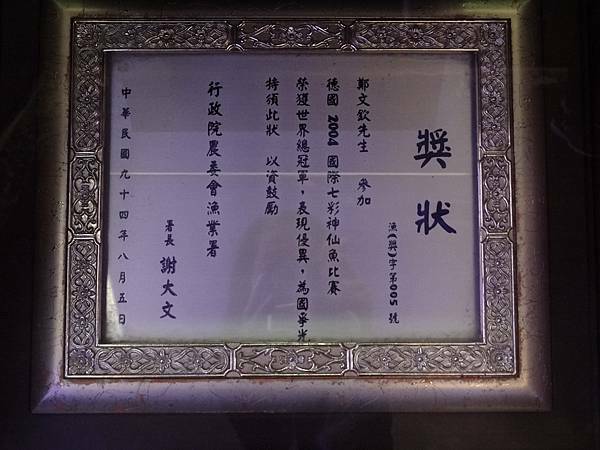 獎狀
漁(獎)字第005 號
鄭文欽先生 參加
德國 2004 國際七彩神仙魚比賽
榮獲世界總冠軍，表現優異，為國爭光
特頒此狀 以資鼓勵
行政院農委會漁業署
署長 謝大文
中華民國九十四年八月五日